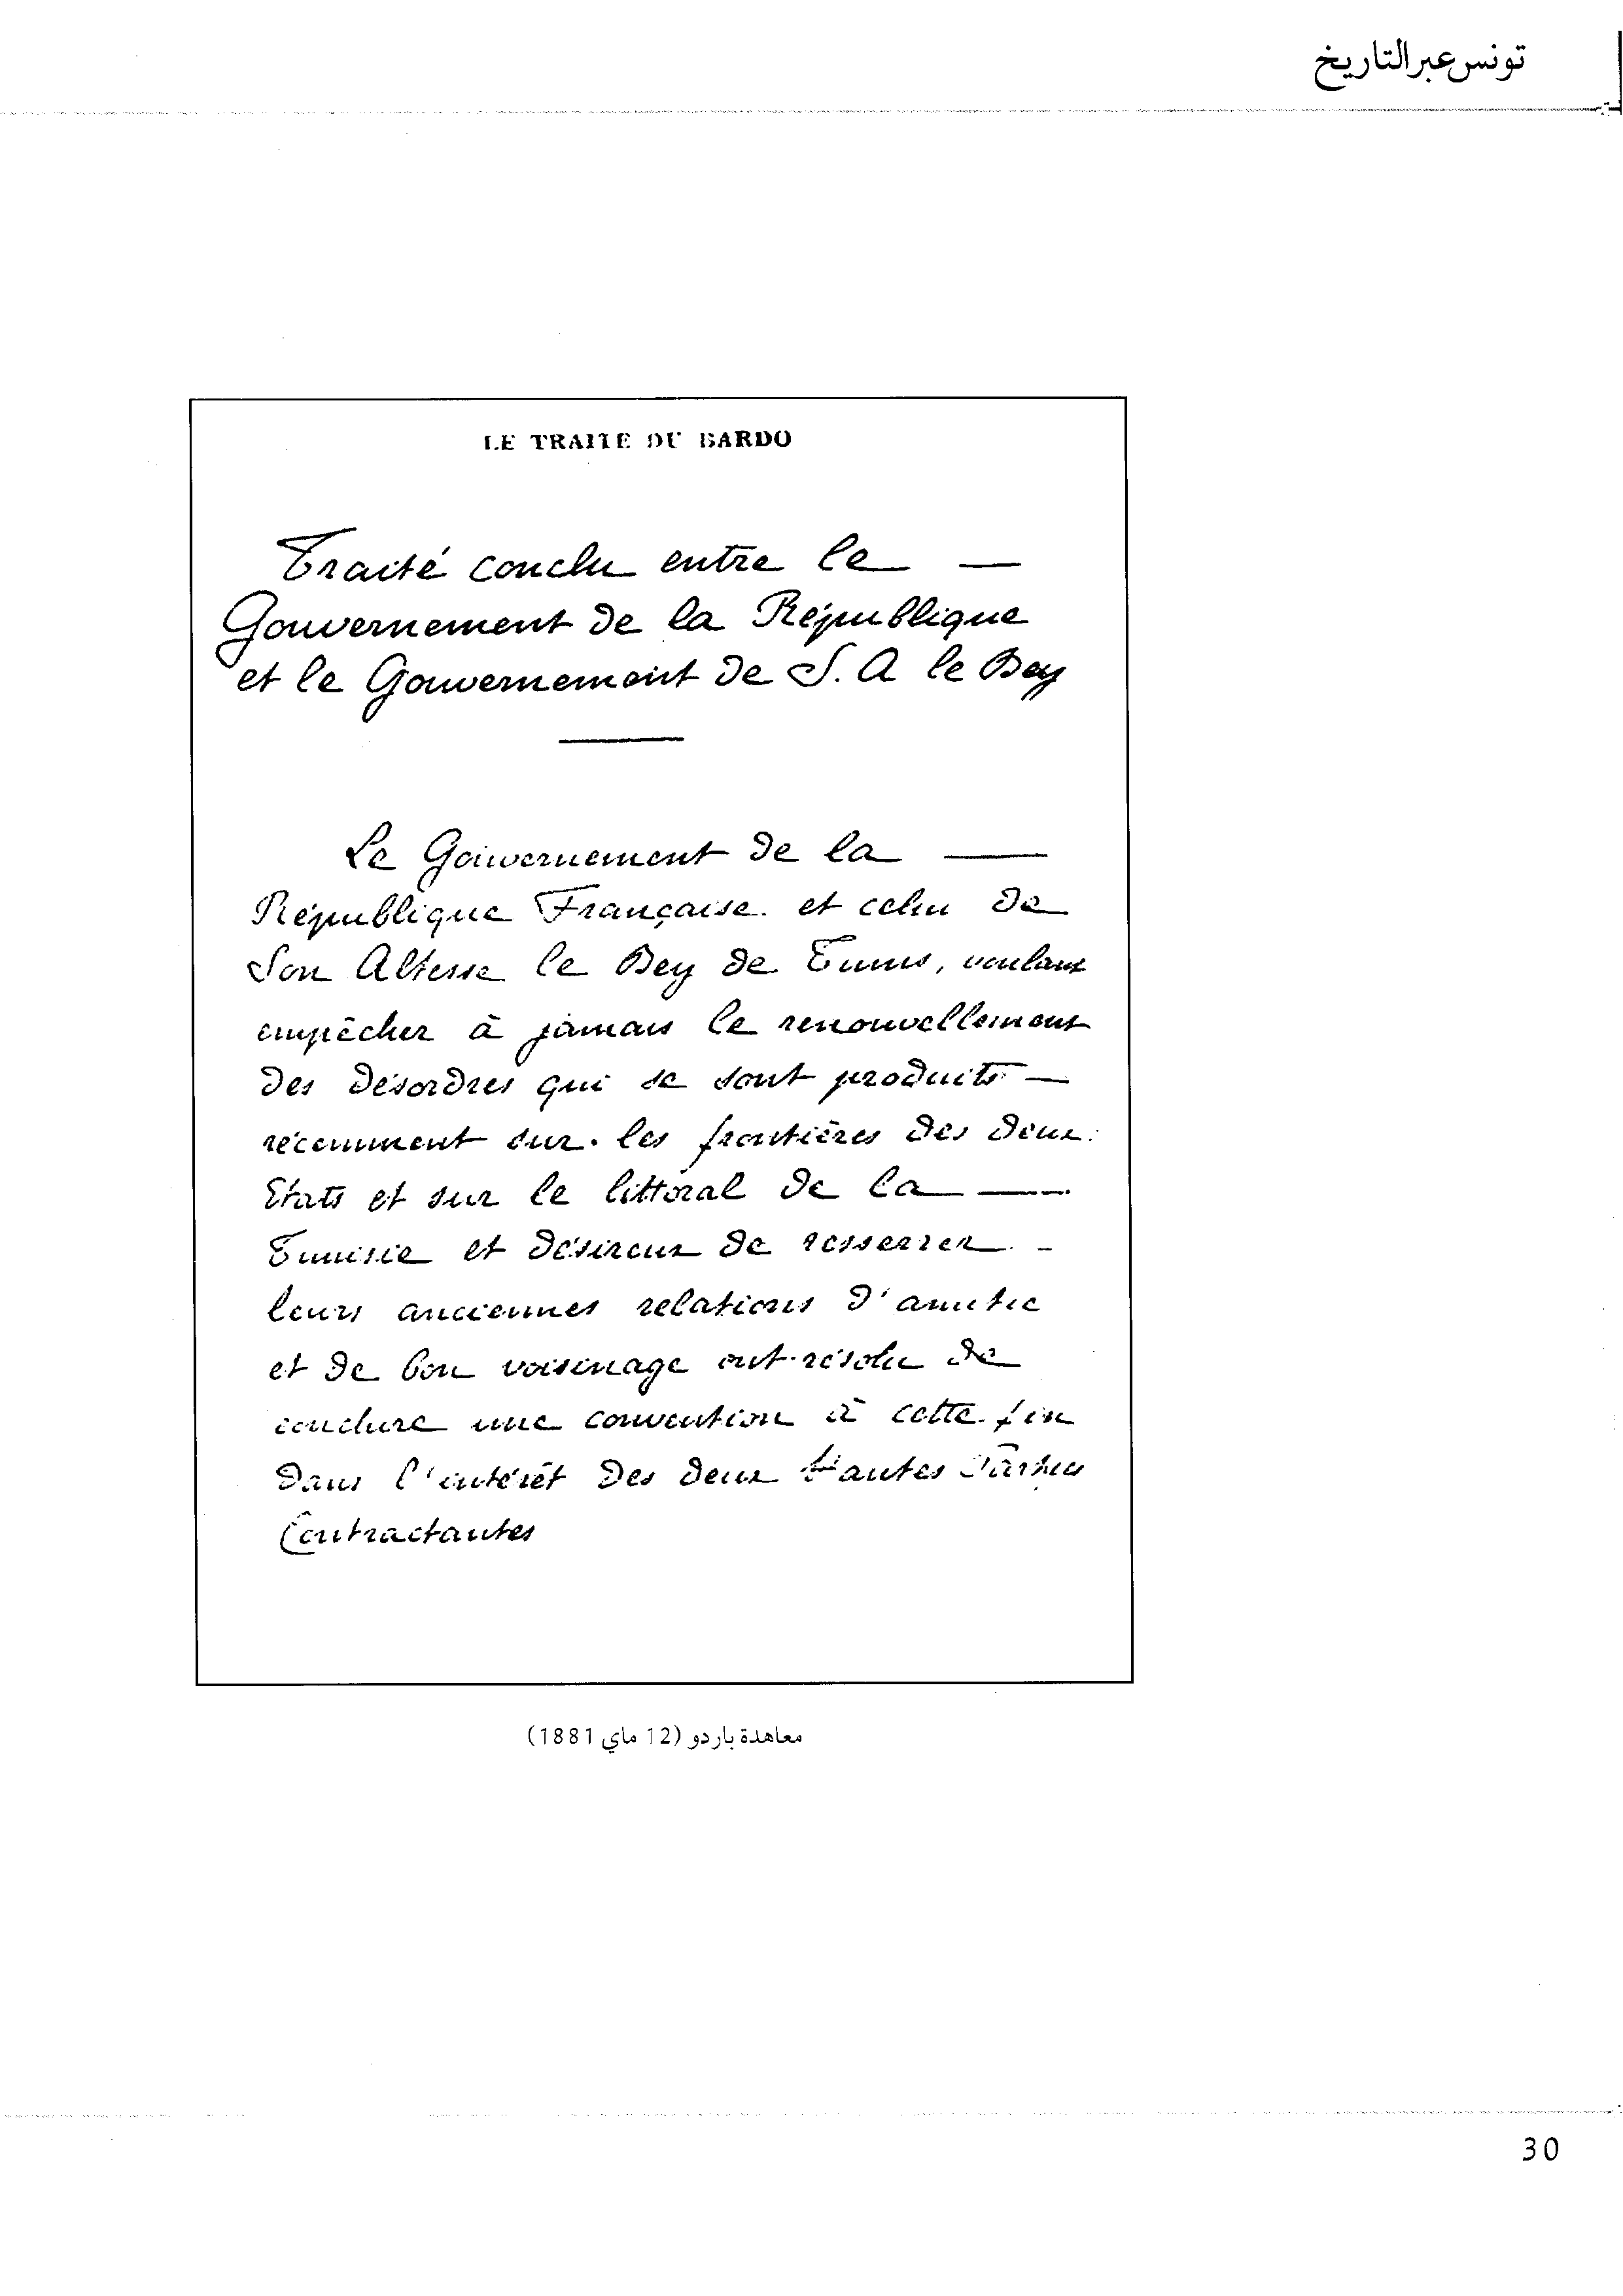 تونس عبر التاريخ
LE TRAITE DU BARDO
Traité conclu entre le —
Gouvernement de la République
et le Gouvernement de S. A le Bey
Le Gouvernement de la —
République Française et celui de
Son Altesse le Bey de Tunis, voulant
empêcher à jamais le renouvellement
des désordres qui se sont produits —
récemment sur les frontières des deux
Etats et sur le littoral de la —
Tunisie et désireux de resserrer -
leurs anciennes relations d'amitié
et de bon voisinage ont résolu de
conclure une convention à cette fin
dans l'intérêt des deux Hautes Parties
Contractantes
معاهدة باردو (12 ماي 1881)
30